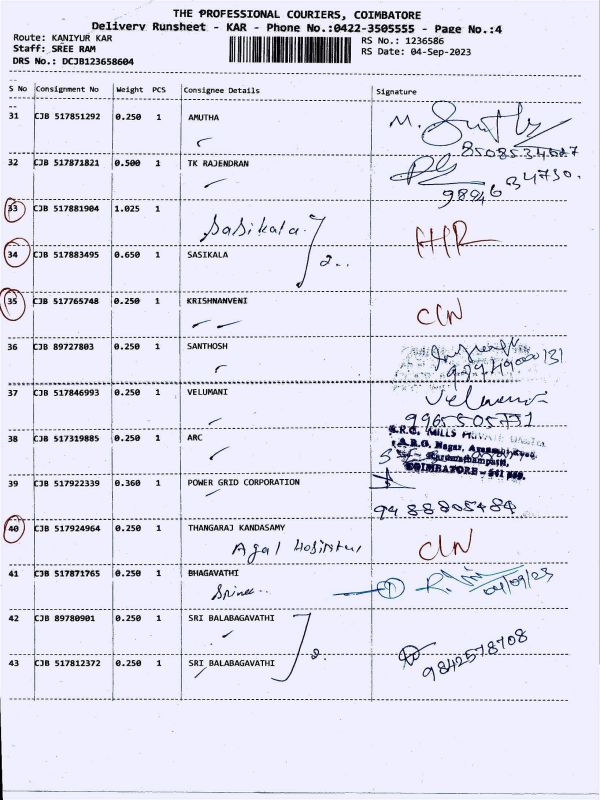 THE PROFESSIONAL COURIERS, COIMBATORE
Delivery Runsheet - KAR - Phone No.:0422-3505555 - Page No.:4
Route: KANIYUR KAR
RS No.: 1236586
Staff: SREE RAM
RS Date: 04-Sep-2023
DRS No.: DCJB123658604
S No Consignment No Weight PCS Consignee Details Signature
31 CJB 517851292 0.250 1 AMUTHA
32 CJB 517871821 0.500 1 TK RAJENDRAN
33 CJB 517881904 1.025 1
Sasikala
34 CJB 517883495 0.650 1 SASIKALA
2..
35 CJB 517765748 0.250 1 KRISHNANVENI
CLN
36 CJB 89727803 0.250 1 SANTHOSH
37 CJB 517846993 0.250 1 VELUMANI Velumani
9965505771
38 CJB 517319885 0.250 1 ARC
MILLS PRIVATE
Nagar,
COIMBATORE -
39 CJB 517922339 0.360 1 POWER GRID CORPORATION
9488805484
40 CJB 517924964 0.250 1 THANGARAJ KANDASAMY
CLN
41 CJB 517871765 0.250 1 BHAGAVATHI
04/09/23
42 CJB 89780901 0.250 1 SRI BALABAGAVATHI
2.
9842578708
43 CJB 517812372 0.250 1 SRI BALABAGAVATHI